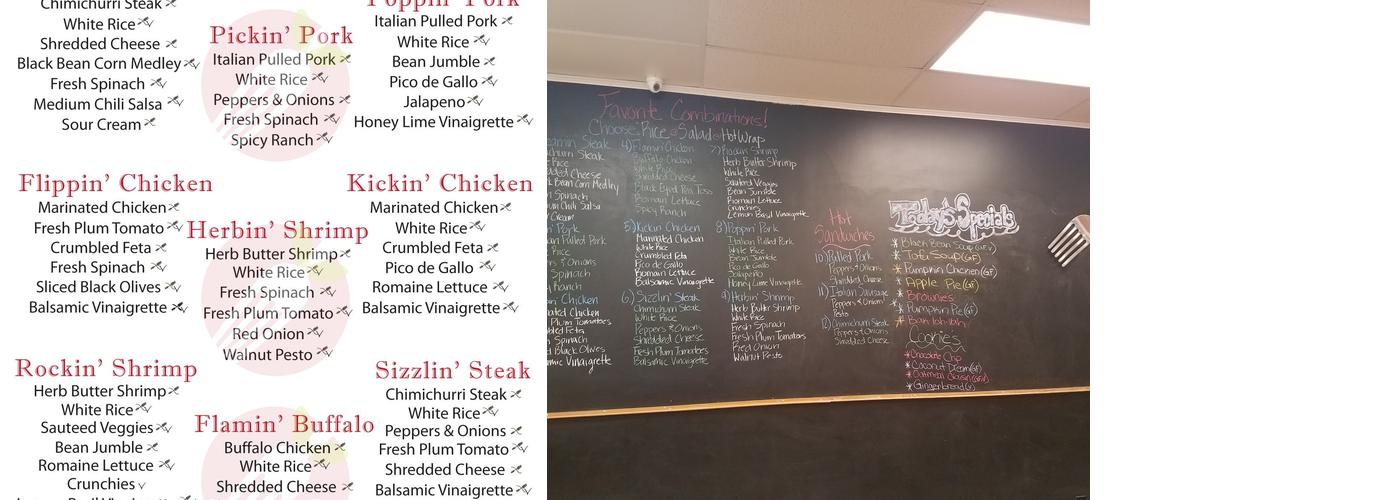 Chimichurri Steak
White Rice
Shredded Cheese
Black Bean Corn Medley
Fresh Spinach
Medium Chili Salsa
Sour Cream
Pickin' Pork
Italian Pulled Pork
White Rice
Peppers & Onions
Fresh Spinach
Spicy Ranch
Poppin' Pork
Italian Pulled Pork
White Rice
Bean Jumble
Pico de Gallo
Jalapeno
Honey Lime Vinaigrette
Flippin' Chicken
Marinated Chicken
Fresh Plum Tomato
Crumbled Feta
Fresh Spinach
Sliced Black Olives
Balsamic Vinaigrette
Herbin' Shrimp
Herb Butter Shrimp
White Rice
Fresh Spinach
Fresh Plum Tomato
Red Onion
Walnut Pesto
Kickin' Chicken
Marinated Chicken
White Rice
Crumbled Feta
Pico de Gallo
Romaine Lettuce
Balsamic Vinaigrette
Rockin' Shrimp
Herb Butter Shrimp
White Rice
Sauteed Veggies
Bean Jumble
Romaine Lettuce
Crunchies
Flamin' Buffalo
Buffalo Chicken
White Rice
Shredded Cheese
Sizzlin' Steak
Chimichurri Steak
White Rice
Peppers & Onions
Fresh Plum Tomato
Shredded Cheese
Balsamic Vinaigrette
Favorite Combinations!
Choose Rice Salad Hot Wrap
Steak
churri Steak
Rice
Cheese
Bean Corn Medley
Spinach
Chili Salsa
Cream
Pork
Pulled Pork
Rice
Onions
Spinach
Ranch
Chicken
Chicken
Plum Tomatoes
Feta
Spinach
Black Olives
Vinaigrette
4) Flamin' Chicken
Buffalo Chicken
White Rice
Shredded Cheese
Black Eyed Pea Toss
Romain Lettuce
Spicy Ranch
5) Kickin Chicken
Marinated Chicken
White Rice
Crumbled Feta
Pico de Gallo
Romain Lettuce
Balsamic Vinaigrette
6) Sizzlin' Steak
Chimichurri Steak
White Rice
Peppers & Onions
Shredded Cheese
Fresh Plum Tomatoes
Balsamic Vinaigrette
7) Rockin' Shrimp
Herb Butter Shrimp
White Rice
Sauteed Veggies
Bean Jumble
Romain Lettuce
Crunchies
Lemon Basil Vinaigrette
8) Poppin' Pork
Italian Pulled Pork
White Rice
Bean Jumble
Pico de Gallo
Jalapeno
Honey Lime Vinaigrette
9) Herbin' Shrimp
Herb Butter Shrimp
White Rice
Fresh Spinach
Fresh Plum Tomatoes
Red Onion
Walnut Pesto
Hot
Sandwiches
10) Pulled Pork
Peppers & Onions
Shredded Cheese
11) Italian Sausage
Peppers & Onions
Pesto
12) Chimichurri Steak
Peppers & Onions
Shredded Cheese
Today's Specials
* Black Bean Soup
* Tofu Soup (GF)
* Pumpkin Chicken (GF)
* Apple Pie (GF)
* Brownies
* Pumpkin Pie (GF)
Cookies
* Chocolate Chip
* Coconut Dream (GF)
* Oatmeal Raisin (GF)
* Gingerbread